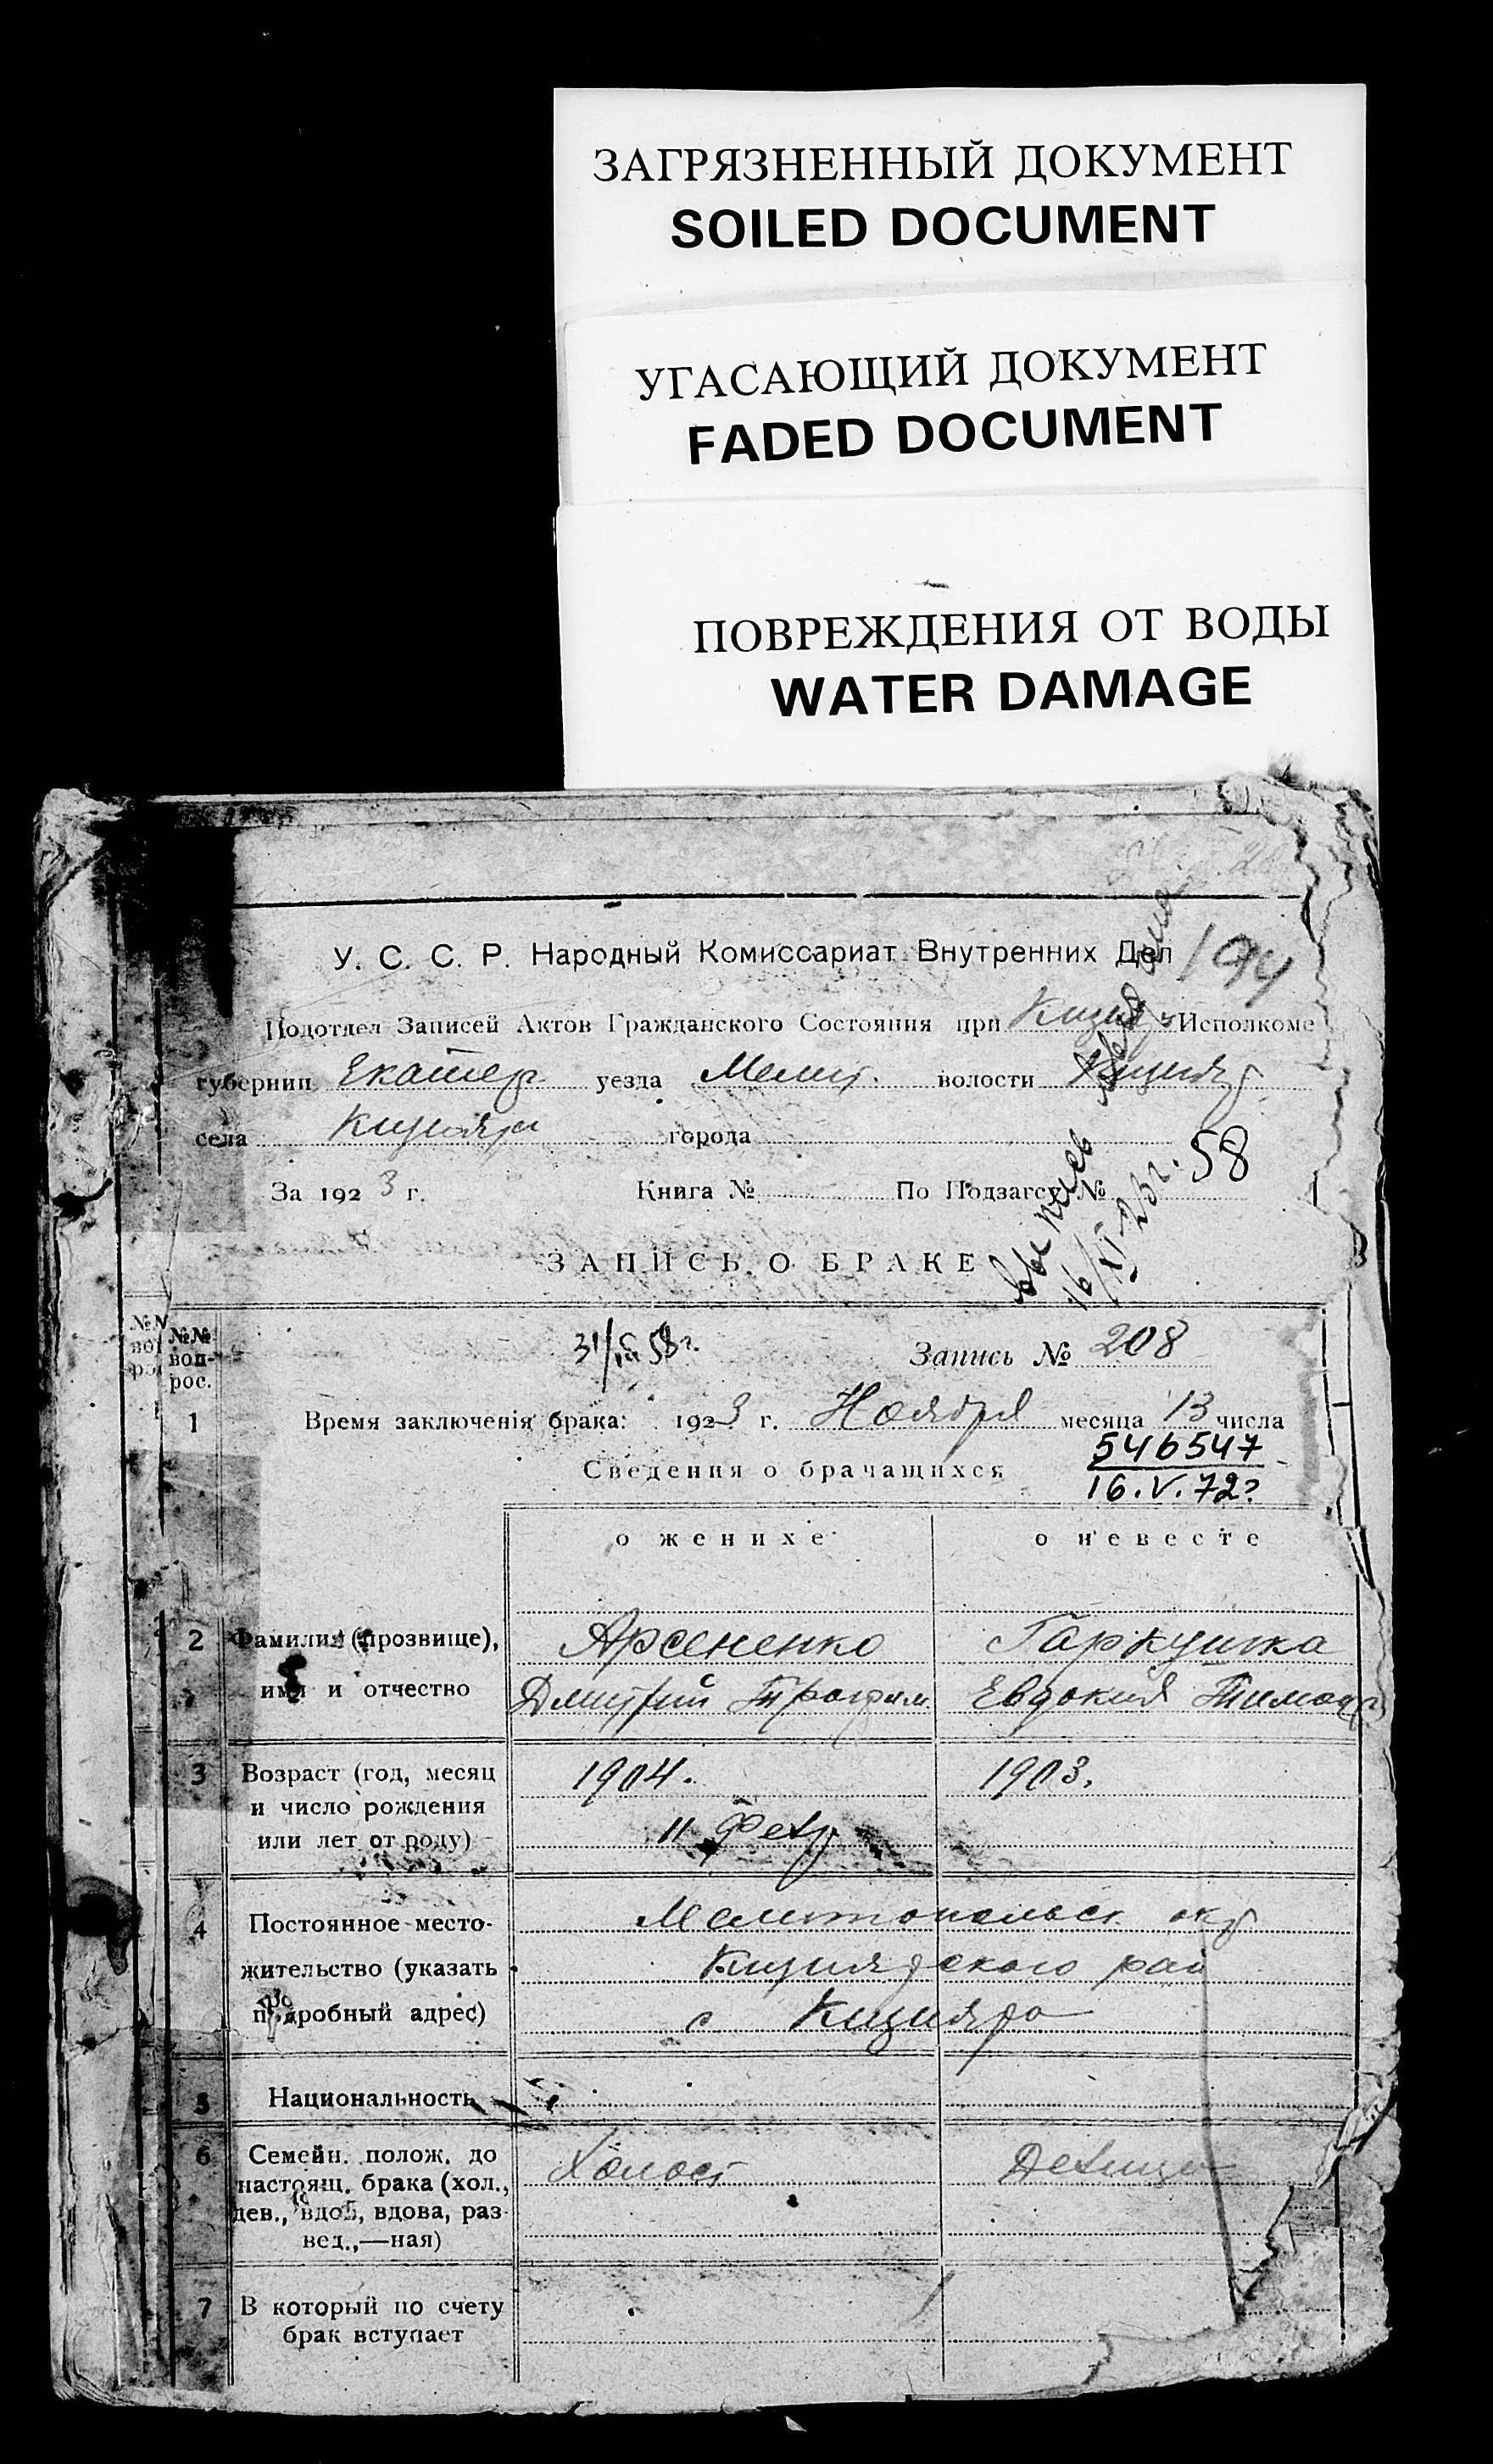 ЗАГРЯЗНЕННЫЙ ДОКУМЕНТ
SOILED DOCUMENT
УГАСАЮЩИЙ ДОКУМЕНТ
FADED DOCUMENT
ПОВРЕЖДЕНИЯ ОТ ВОДЫ
WATER DAMAGE
У. С. С. Р. Народный Комиссариат Внутренних Дел 194
Подотдел Записей Актов Гражданского Состояния при Исполкоме
губернии Екатер уезда Мелит. волости Кизияр
села Кизияри города
За 1923 г. Книга № По Подзагсу № 58
16/XI-23г.
ЗАПИСЬ О БРАКЕ
№№ воп- рос. Запись № 208
1 Время заключенія брака: 1923 г. Ноября месяца 13 числа
Сведения о брачащихся 546547
16.V.72г
о женихе о невесте
2 Фамилия (прозвище), Арсененко Гаркушка
имя и отчество Дмитрий Трофим Евдокия
3 Возраст (год, месяц 1904. 1903.
и число рождения
или лет от роду) 11 Февр
4 Постоянное место- Мелитопольск окр
жительство (указать Кизиярского рай
подробный адрес) с Кизияра
5 Национальность
6 Семейн. полож. до Холост Девица
настоящ. брака (хол.,
дев., вдов, вдова, раз-
вед.,—ная)
7 В который по счету
брак вступает